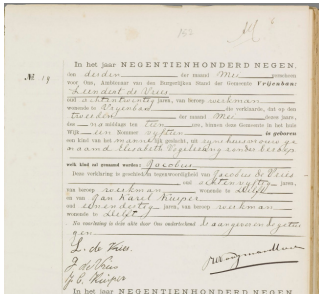 In het jaar NEGENTIENHONDERD NEGEN,
den derden der maand Mei verscheen
voor Ons, Ambtenaar van den Burgerlijken Stand der Gemeente Vrijenban:
№ 19
Leendert de Vries
oud achtentwintig jaren, van beroep werkman
wonende te Vrijenban, die verklaarde, dat op den
tweeden der maand Mei dezes jaars,
des middags te een ure, binnen deze Gemeente in het huis
Wijk een Nummer vijftien is geboren
een kind van het mannelijk geslacht, uit zijne huisvrouw
Elisabeth Vogelezang zonder beroep
welk kind zal genaamd worden: Jacobus
Deze verklaring is geschied in tegenwoordigheid van Jacobus de Vries
oud achtenvijftig jaren,
van beroep werkman wonende te Delft
en van Jan Karel Kuiper
oud eenendertig jaren, van beroep werkman
wonende te Delft
Na voorlezing is deze akte door Ons onderteekend
aangever en de getuigen
L. de Vries
J de Vries
J. C. Kuiper
In het jaar NEGENTIENHONDERD NEGEN,